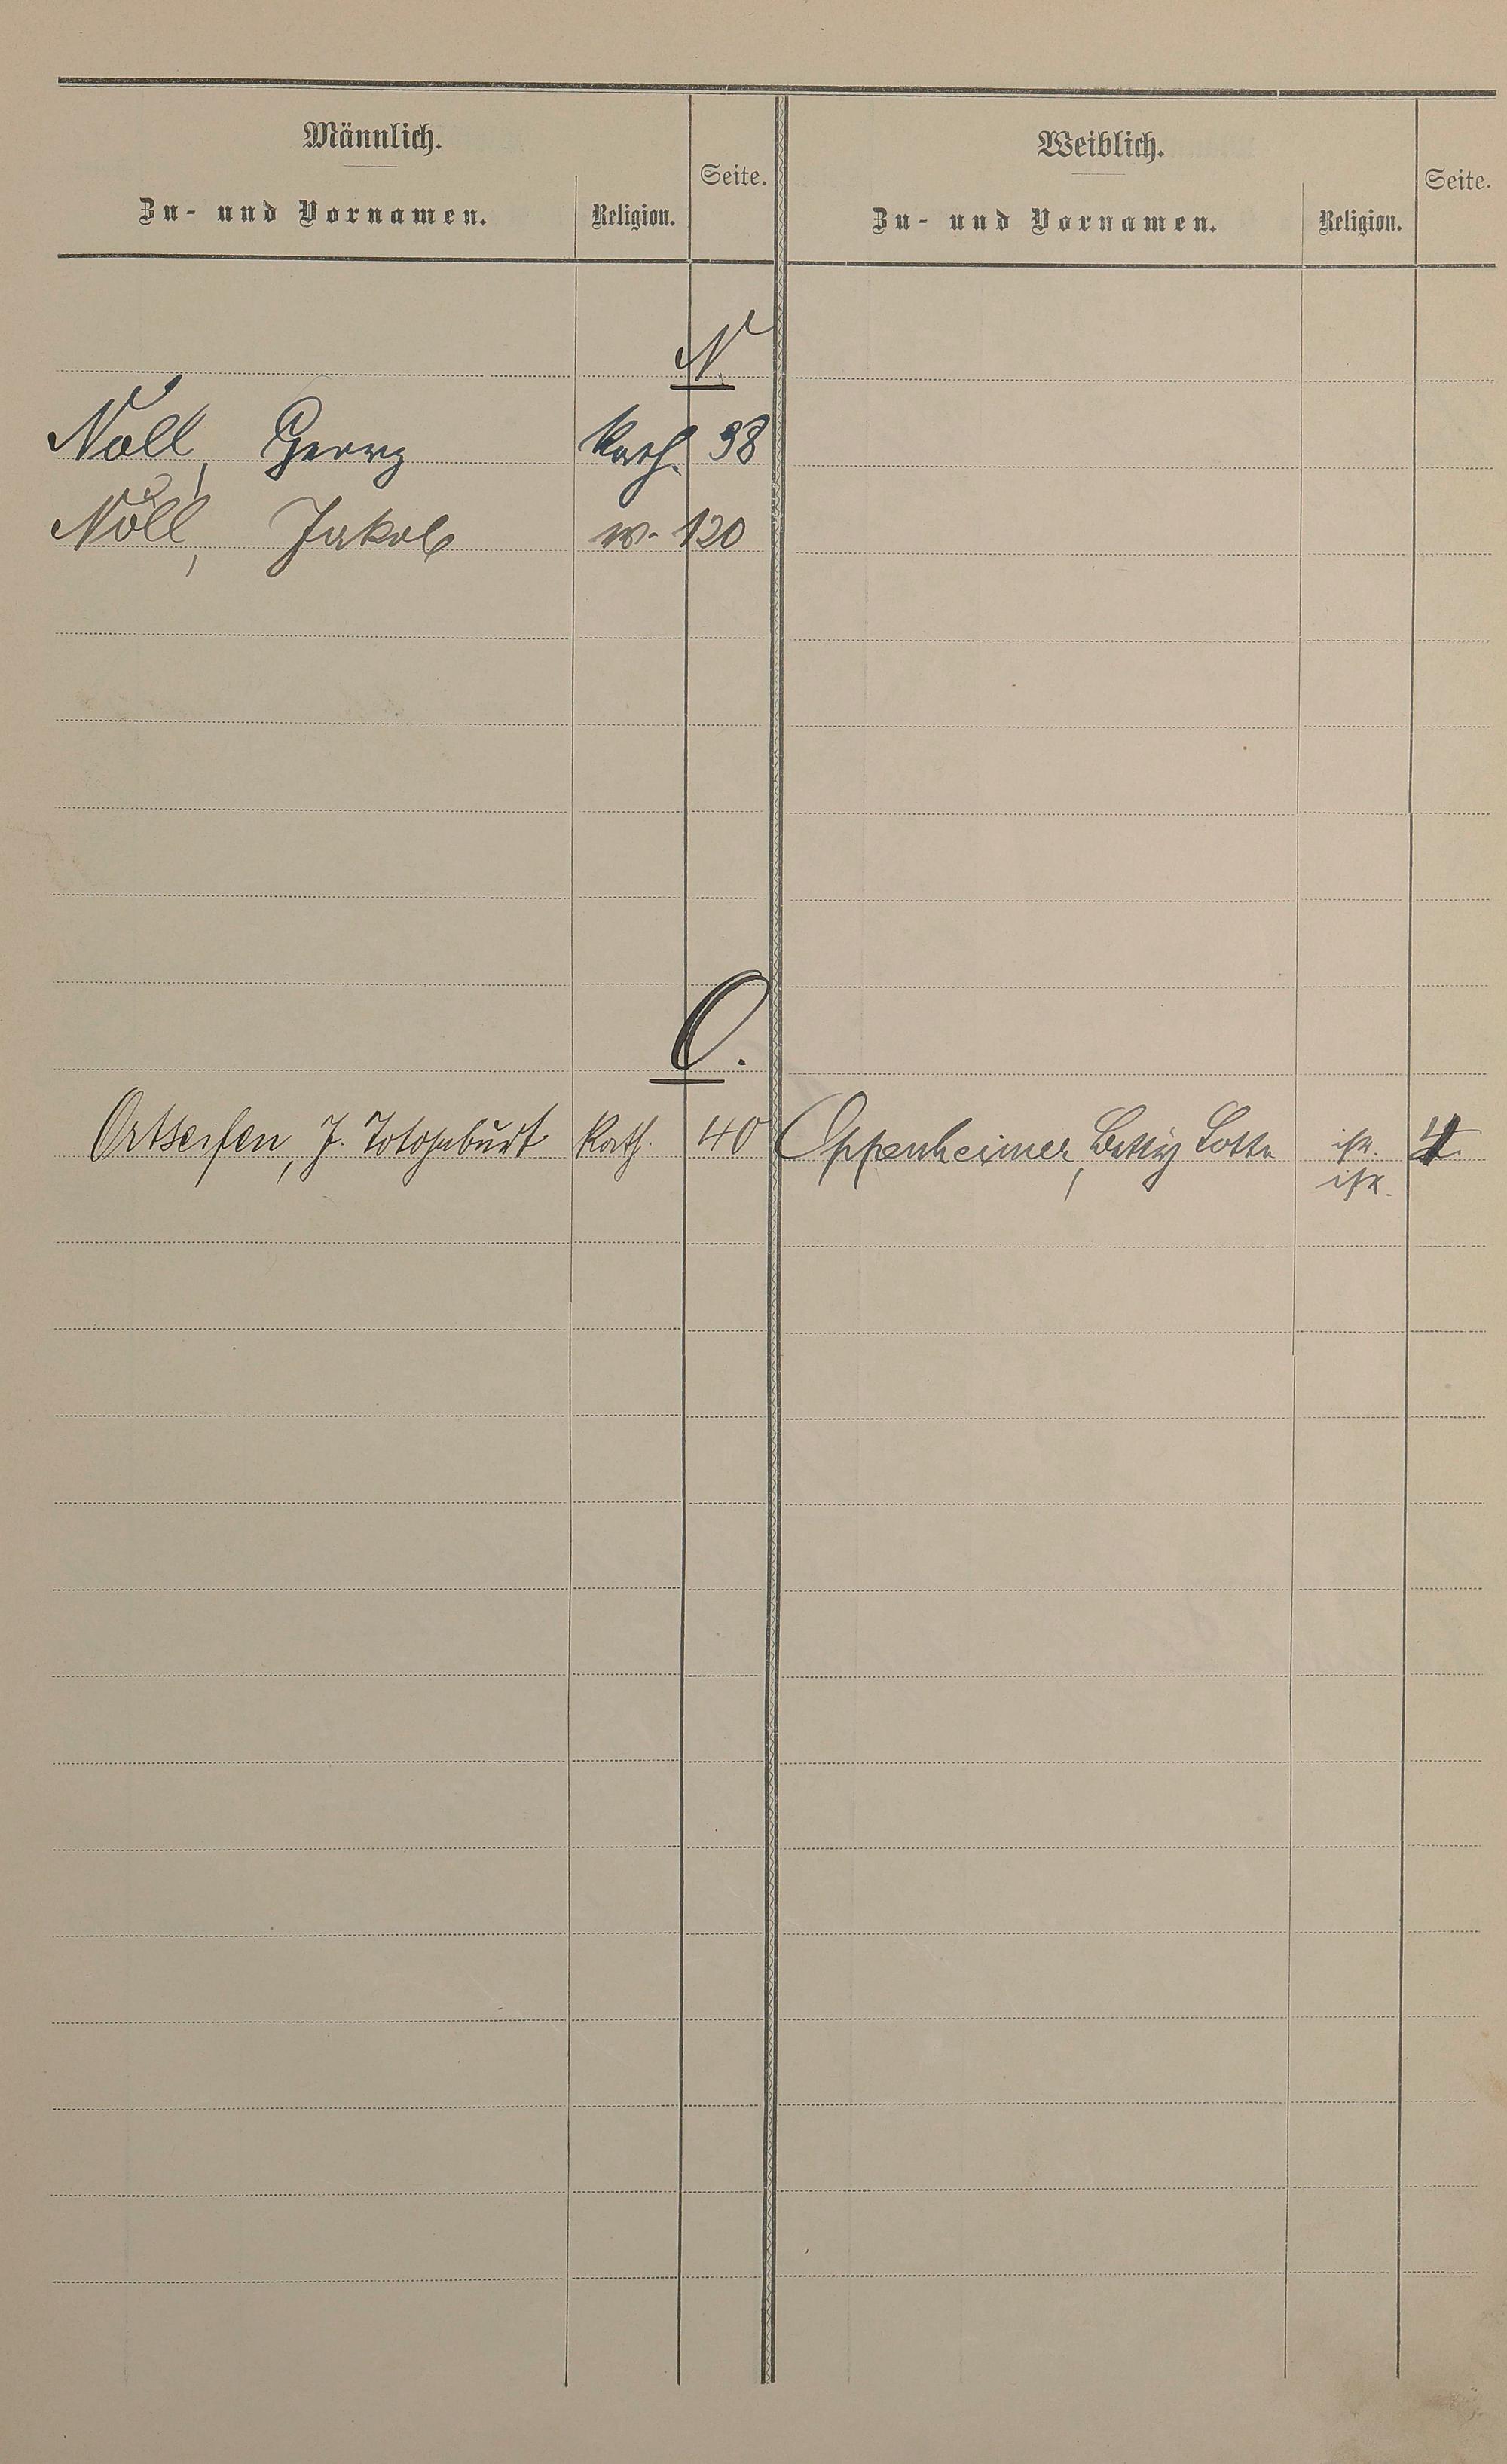 Männlich.
Zu- und Vornamen.
Religion.
Seite.
Weiblich.
Zu- und Vornamen.
Religion.
Seite.
N.
Noll, Georg Kath. 98
Nöll, Jakob 120
O.
Ortseifen, J. Totgeburt Kath. 40
Oppenheimer, Betty Lotte isr. 4.
isr.